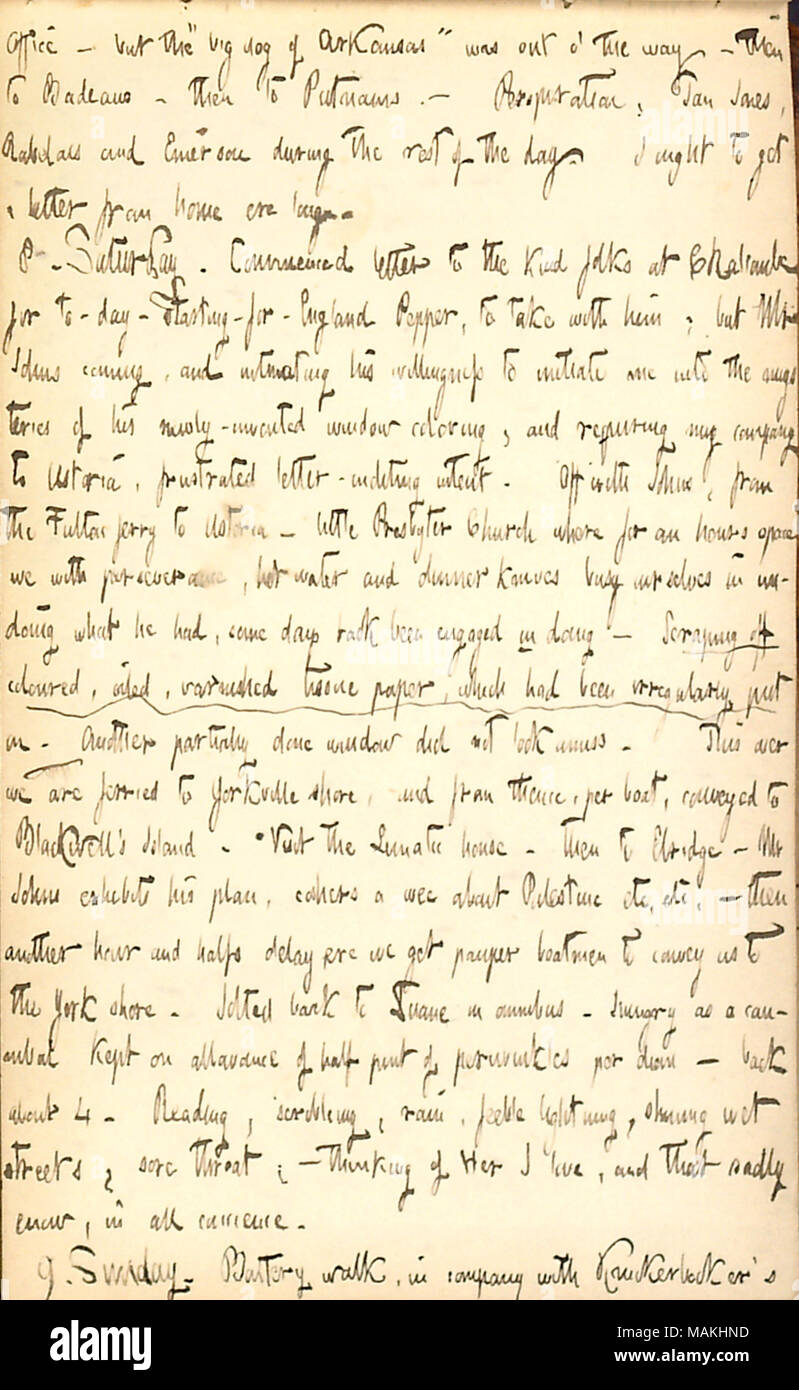 office — but the "big dog of Arkansas" was out o' the way — then
to Badeaus — then to Putnams. — Perspiration, Tom Jones,
Rabelais and Emerson during the rest of the day. I ought to get
a letter from home ere long.
8. Saturday. Commenced letter to the kind folks at Chacombe
for to-day-starting-for-England Pepper, to take with him; but Mr
Johns coming, and intimating his willingness to initiate me into the mys
teries of his newly-invented window coloring, and requiring my company
to Astoria, frustrated letter-inditing intent. Off with Johns, from
the Fulton ferry to Astoria — little Presbyter Church where for an hours space
we with perseverance, hot water and dinner knives busy ourselves in un-
doing what he had, some days back been engaged in doing — Scraping off
coloured, oiled, varnished tissue paper, which had been irregularly put
on. Another partially done window did not look amiss. This over
we are ferried to Yorkville shore, and from thence, per boat, conveyed to
Blackwell's Island. Visit the Lunatic house — then to Elridge — Mr
Johns exhibits his plan, a wee about Palestine etc, etc, — then
another hour and halfs delay ere we get pauper boatmen to convey us to
the York shore. Jolted back to Duane in omnibus — hungry as a can-
nibal kept on allowance of half pint of perriwinkles per diem — back
about 4. Reading, scribbling, rain, feeble lightning, shining wet
streets, sore throat; — thinking of Her I love, and that sadly
enow, in all conscience.
9. Sunday. Battery walk, in company with Knickerbocker's
alamy
a
Image ID: MAKHND
www.alamy.com